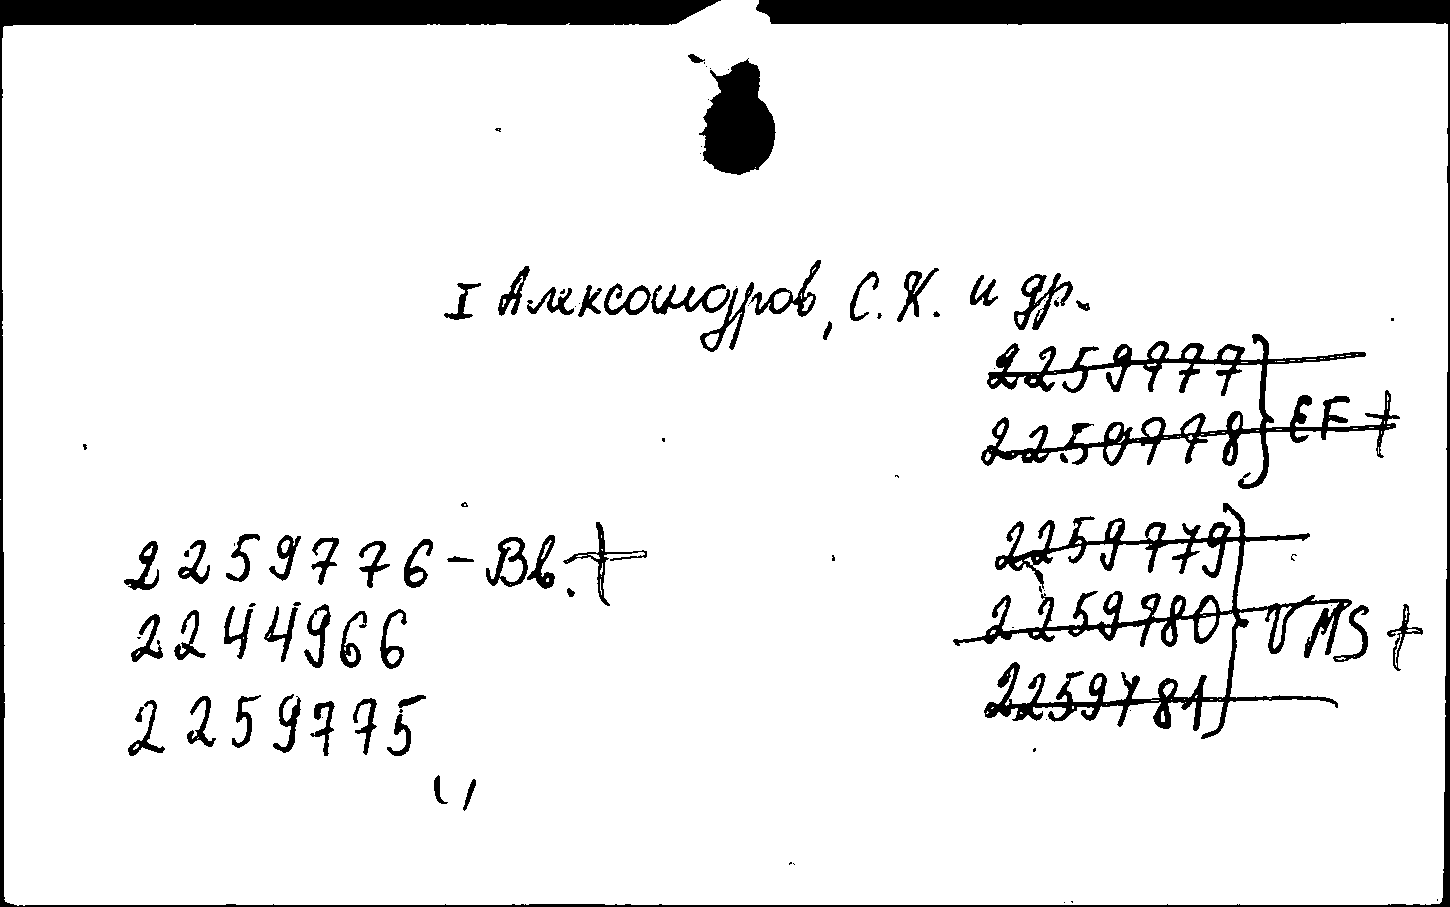 I Александров, С.К. и др.
2259777
2259778 } EF +
2259779
2259780 } VMS +
2259781
2259776 - Вв. +
2244966
2259775